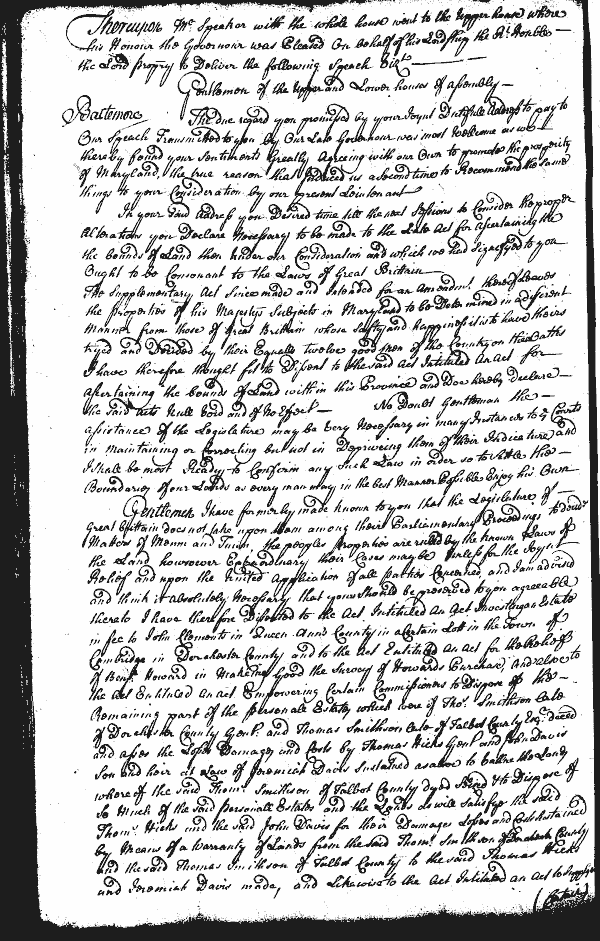 Thereupon Mr Speaker with the whole house went to the upper house where
his Honour the Governour was Pleased On behalf of his Lordship the Rt Honble
the Lord Propry to Deliver the following Speech Vizt
Gentlemen of the upper and Lower houses of assembly
Baltemore The due regard you promised by your Joynt Dutifull Address to pay to
Our Speech Transmitted to you by Our Late Governour was most Welcome as we
thereby found your Sentiments Greatly Agreeing with our Own to promote the prosperity
of Maryland, the true reason that Induced us a second time to Recommend the same
things to your Consideration by our present Lieutenant
In your said Address you Desired time till the next Sessions to Consider the proper
alterations you Declare Necessary to be made to the Late Act for ascertaining the
the bounds of Land then under our Consideration and which we had Signifyed to you
Ought to be Consonant to the Laws of Great Brittain
The Supplementary Act Since made and Intended for an Amendmt thereof Leaves
the properties of his Majestys Subjects in Maryland to be Determined in a different
manner from those of Great Brittain whose Safety and happiness it is to have theirs
tryed and Decided by their Equalls twelve good men of the County on their Oaths
I have therefore thought fit to Dissent to the said Act Intituled An Act for
ascertaining the bounds of Land within this Province and Doe hereby Declare
the said Acts Null Void and of No Effect No Doubt Gentlemen the
assistance of the Legislature may be Very Necessary in many Instances to ye Courts
in maintaining or Correcting but not in Depriving them of their Judicature, and
I shall be most Ready to Confirm any Such Law in order so to Settle the
Boundaries of our Lands as every man may in the best Manner Possible Enjoy his Own
Gentlemen I have formerly made known to you that the Legislature of
Great Brittain does not take upon them among their Parliamentary Proceedings to
Matters of Meum and Tuum, the peoples Properties are ruled by the known Laws of
the Land howsoever Extraordinary their Cases may be Unless for the Joynt
Relief and upon the United Application of all parties Concerned, and I am advised
and think it absolutely Necessary that you Should be preserved to you agreeable
thereto I have therefore Dissented to the Act Intituled An Act Investing an Estate
in fee to John Clements in Queen Anns County in a Certain Lott in the Town of
Cambridge in Dorchester County and to the Act Entituled An Act for the Relief
of Benja Howard in Making Good the Survey of Howards Purchase, And also to
the Act Entituled An Act Empowering Certain Commissioners to Dispose of the
Remaining part of the personale Estate, which were of Thos Smithson Late
of Dorchester County Gent. and Thomas Smithson Late of Talbot County Esq. Deced
and asses the Losses Damages and Costs by Thomas Hicks Gent and John Davis
Son and heir at Law of Jeremiah Davis Sustained as also to the Lands
whereof the said Thoms Smithson of Talbot County dyed Seized & to Dispose of
So Much of the said personall Estate and the Lands as will Satisfye the said
Thoms Hicks and the said John Davis for their Damages Losses and Costs Sustained
by Means of a Warranty of Lands from the said Thoms Smithson of Dorchester County
and the said Thomas Smithson of Talbot County to the said Thomas Hicks
and Jeremiah Davis made, and Likewise to the Act Intituled an Act to Supply